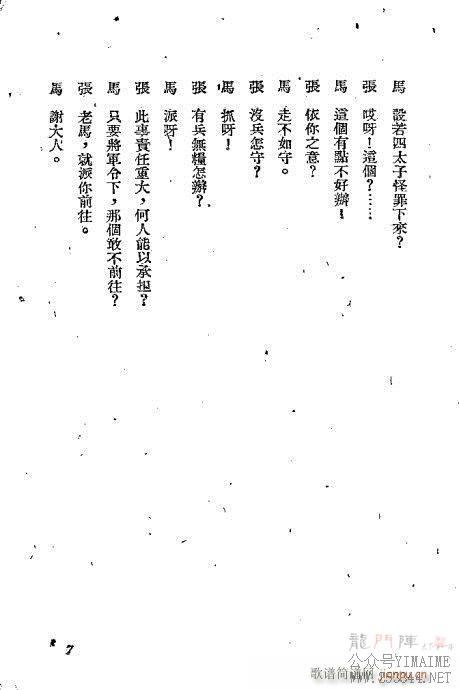 馬　設若四太子怪罪下來？
張　哎呀！這個？……
馬　這個有點不好辦！
張　依你之意？
馬　走不如守。
張　沒兵怎守？
馬　抓呀！
張　有兵無糧怎辦？
馬　派呀！
張　此事責任重大，何人能以承担？
馬　只要將軍令下，那個敢不前往？
張　老馬，就派你前往。
馬　謝大人。
7
龍門陣
公众号YIMAIME
歌谱简谱网
www.253944.NET